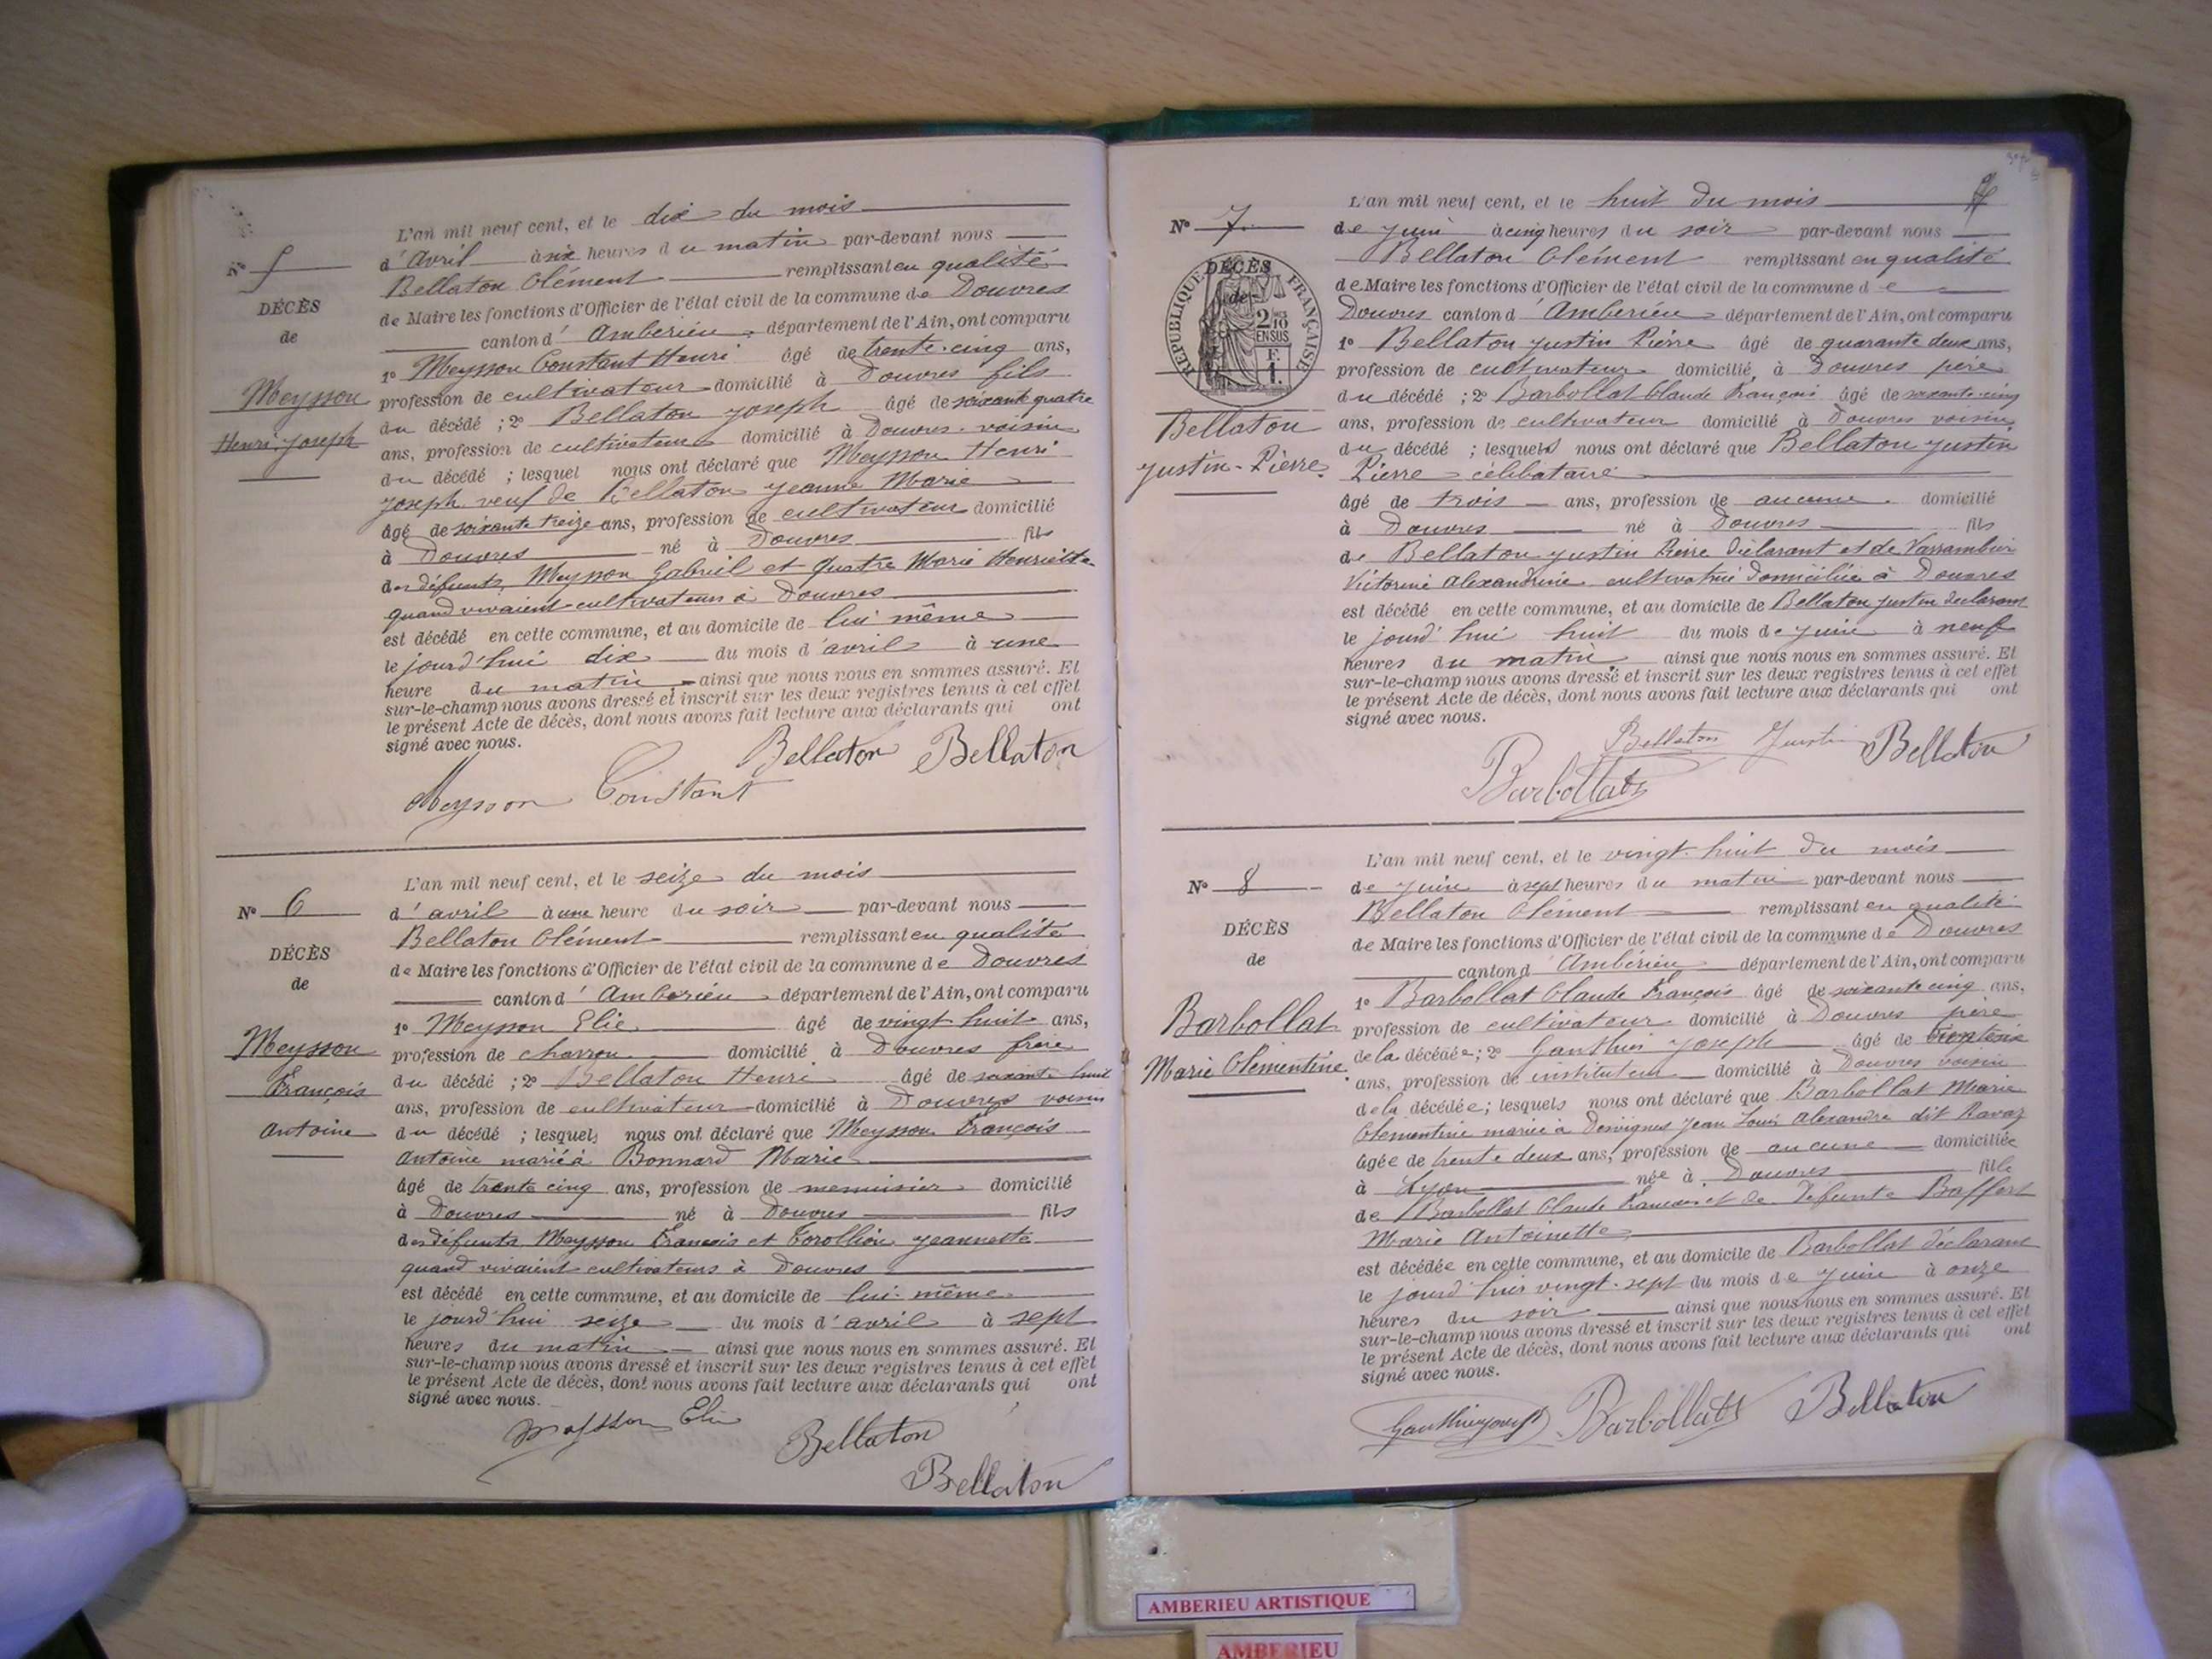 L'an mil neuf cent, et le dix du mois
N° 5
d'Avril à six heures du matin par-devant nous
Bellaton Clément remplissant en qualité
DÉCÈS
de Maire les fonctions d'Officier de l'état civil de la commune de Douvres
de
canton d'Ambérieu département de l'Ain, ont comparu
1° Meysson Constant Henri âgé de trente-cinq ans,
Meysson
profession de cultivateur domicilié à Douvres fils
du décédé ; 2° Bellaton Joseph âgé de soixante quatre
Henri Joseph
ans, profession de cultivateur domicilié à Douvres voisin
du décédé ; lesquel nous ont déclaré que Meysson Henri
Joseph veuf de Bellaton Jeanne Marie
âgé de soixante treize ans, profession de cultivateur domicilié
à Douvres né à Douvres fils
des défunts Meysson Gabriel et Quatre Marie Henriette
quand vivaient cultivateurs à Douvres
est décédé en cette commune, et au domicile de lui même
le jourd'hui dix du mois d'avril à une
heure du matin ainsi que nous nous en sommes assuré. Et
sur-le-champ nous avons dressé et inscrit sur les deux registres tenus à cet effet
le présent Acte de décès, dont nous avons fait lecture aux déclarants qui ont
signé avec nous.
Bellaton Bellaton
Meysson Constant
L'an mil neuf cent, et le seize du mois
N° 6
d'avril à une heure du soir par-devant nous
Bellaton Clément remplissant en qualité
DÉCÈS
de Maire les fonctions d'Officier de l'état civil de la commune de Douvres
de
canton d'Ambérieu département de l'Ain, ont comparu
1° Meysson Elie âgé de vingt huit ans,
Meysson
profession de charron domicilié à Douvres frère
François
du décédé ; 2° Bellaton Henri âgé de soixante huit
ans, profession de cultivateur domicilié à Douvres voisin
Antoine
du décédé ; lesquels nous ont déclaré que Meysson François
Antoine marié à Bonnard Marie
âgé de trente cinq ans, profession de menuisier domicilié
à Douvres né à Douvres fils
des défunts Meysson François et Jeannette
quand vivaient cultivateurs à Douvres
est décédé en cette commune, et au domicile de lui-même
le jourd'hui seize du mois d'avril à sept
heures du matin ainsi que nous nous en sommes assuré. Et
sur-le-champ nous avons dressé et inscrit sur les deux registres tenus à cet effet
le présent Acte de décès, dont nous avons fait lecture aux déclarants qui ont
signé avec nous.
Meysson Elie
Bellaton
Bellaton
L'an mil neuf cent, et le huit du mois
N° 7
de juin à cinq heures du soir par-devant nous
Bellaton Clément remplissant en qualité
DÉCÈS
de
RÉPUBLIQUE FRANÇAISE
2/10 EN SUS
1 F.
de Maire les fonctions d'Officier de l'état civil de la commune de
Douvres canton d'Ambérieu département de l'Ain, ont comparu
1° Bellaton Justin Pierre âgé de quarante deux ans,
profession de cultivateur domicilié à Douvres père
du décédé ; 2° Barbollat Claude François âgé de soixante-cinq
Bellaton
ans, profession de cultivateur domicilié à Douvres voisin
du décédé ; lesquels nous ont déclaré que Bellaton Justin
Justin-Pierre
Pierre célibataire
âgé de trois ans, profession de aucune domicilié
à Douvres né à Douvres fils
de Bellaton Justin Pierre déclarant et de
Victorine Alexandrine cultivatrice domiciliée à Douvres
est décédé en cette commune, et au domicile de Bellaton Justin déclarant
le jourd'hui huit du mois de juin à neuf
heures du matin ainsi que nous nous en sommes assuré. Et
sur-le-champ nous avons dressé et inscrit sur les deux registres tenus à cet effet
le présent Acte de décès, dont nous avons fait lecture aux déclarants qui ont
signé avec nous.
Bellaton Justin Bellaton
Barbollat
L'an mil neuf cent, et le vingt-huit du mois
N° 8
de juin à sept heures du matin par-devant nous
Bellaton Clément remplissant en qualité
DÉCÈS
de Maire les fonctions d'Officier de l'état civil de la commune de Douvres
de
canton d'Ambérieu département de l'Ain, ont comparu
1° Barbollat Claude François âgé de soixante cinq ans,
Barbollat
profession de cultivateur domicilié à Douvres père
de la décédée ; 2° Gauthier Joseph âgé de
Marie Clémentine
ans, profession de instituteur domicilié à Douvres voisin
de la décédée ; lesquels nous ont déclaré que Barbollat Marie
Clémentine mariée à Desvignes Jean Louis Alexandre dit Ravaz
âgée de trente deux ans, profession de aucune domiciliée
à Lyon née à Douvres fille
de Barbollat Claude François et de défunte Baffert
Marie Antoinette
est décédée en cette commune, et au domicile de Barbollat déclarant
le jourd'hier vingt-sept du mois de juin à onze
heures du soir ainsi que nous nous en sommes assuré. Et
sur-le-champ nous avons dressé et inscrit sur les deux registres tenus à cet effet
le présent Acte de décès, dont nous avons fait lecture aux déclarants qui ont
signé avec nous.
Gauthier Joseph Barbollat Bellaton
AMBERIEU ARTISTIQUE
AMBERIEU